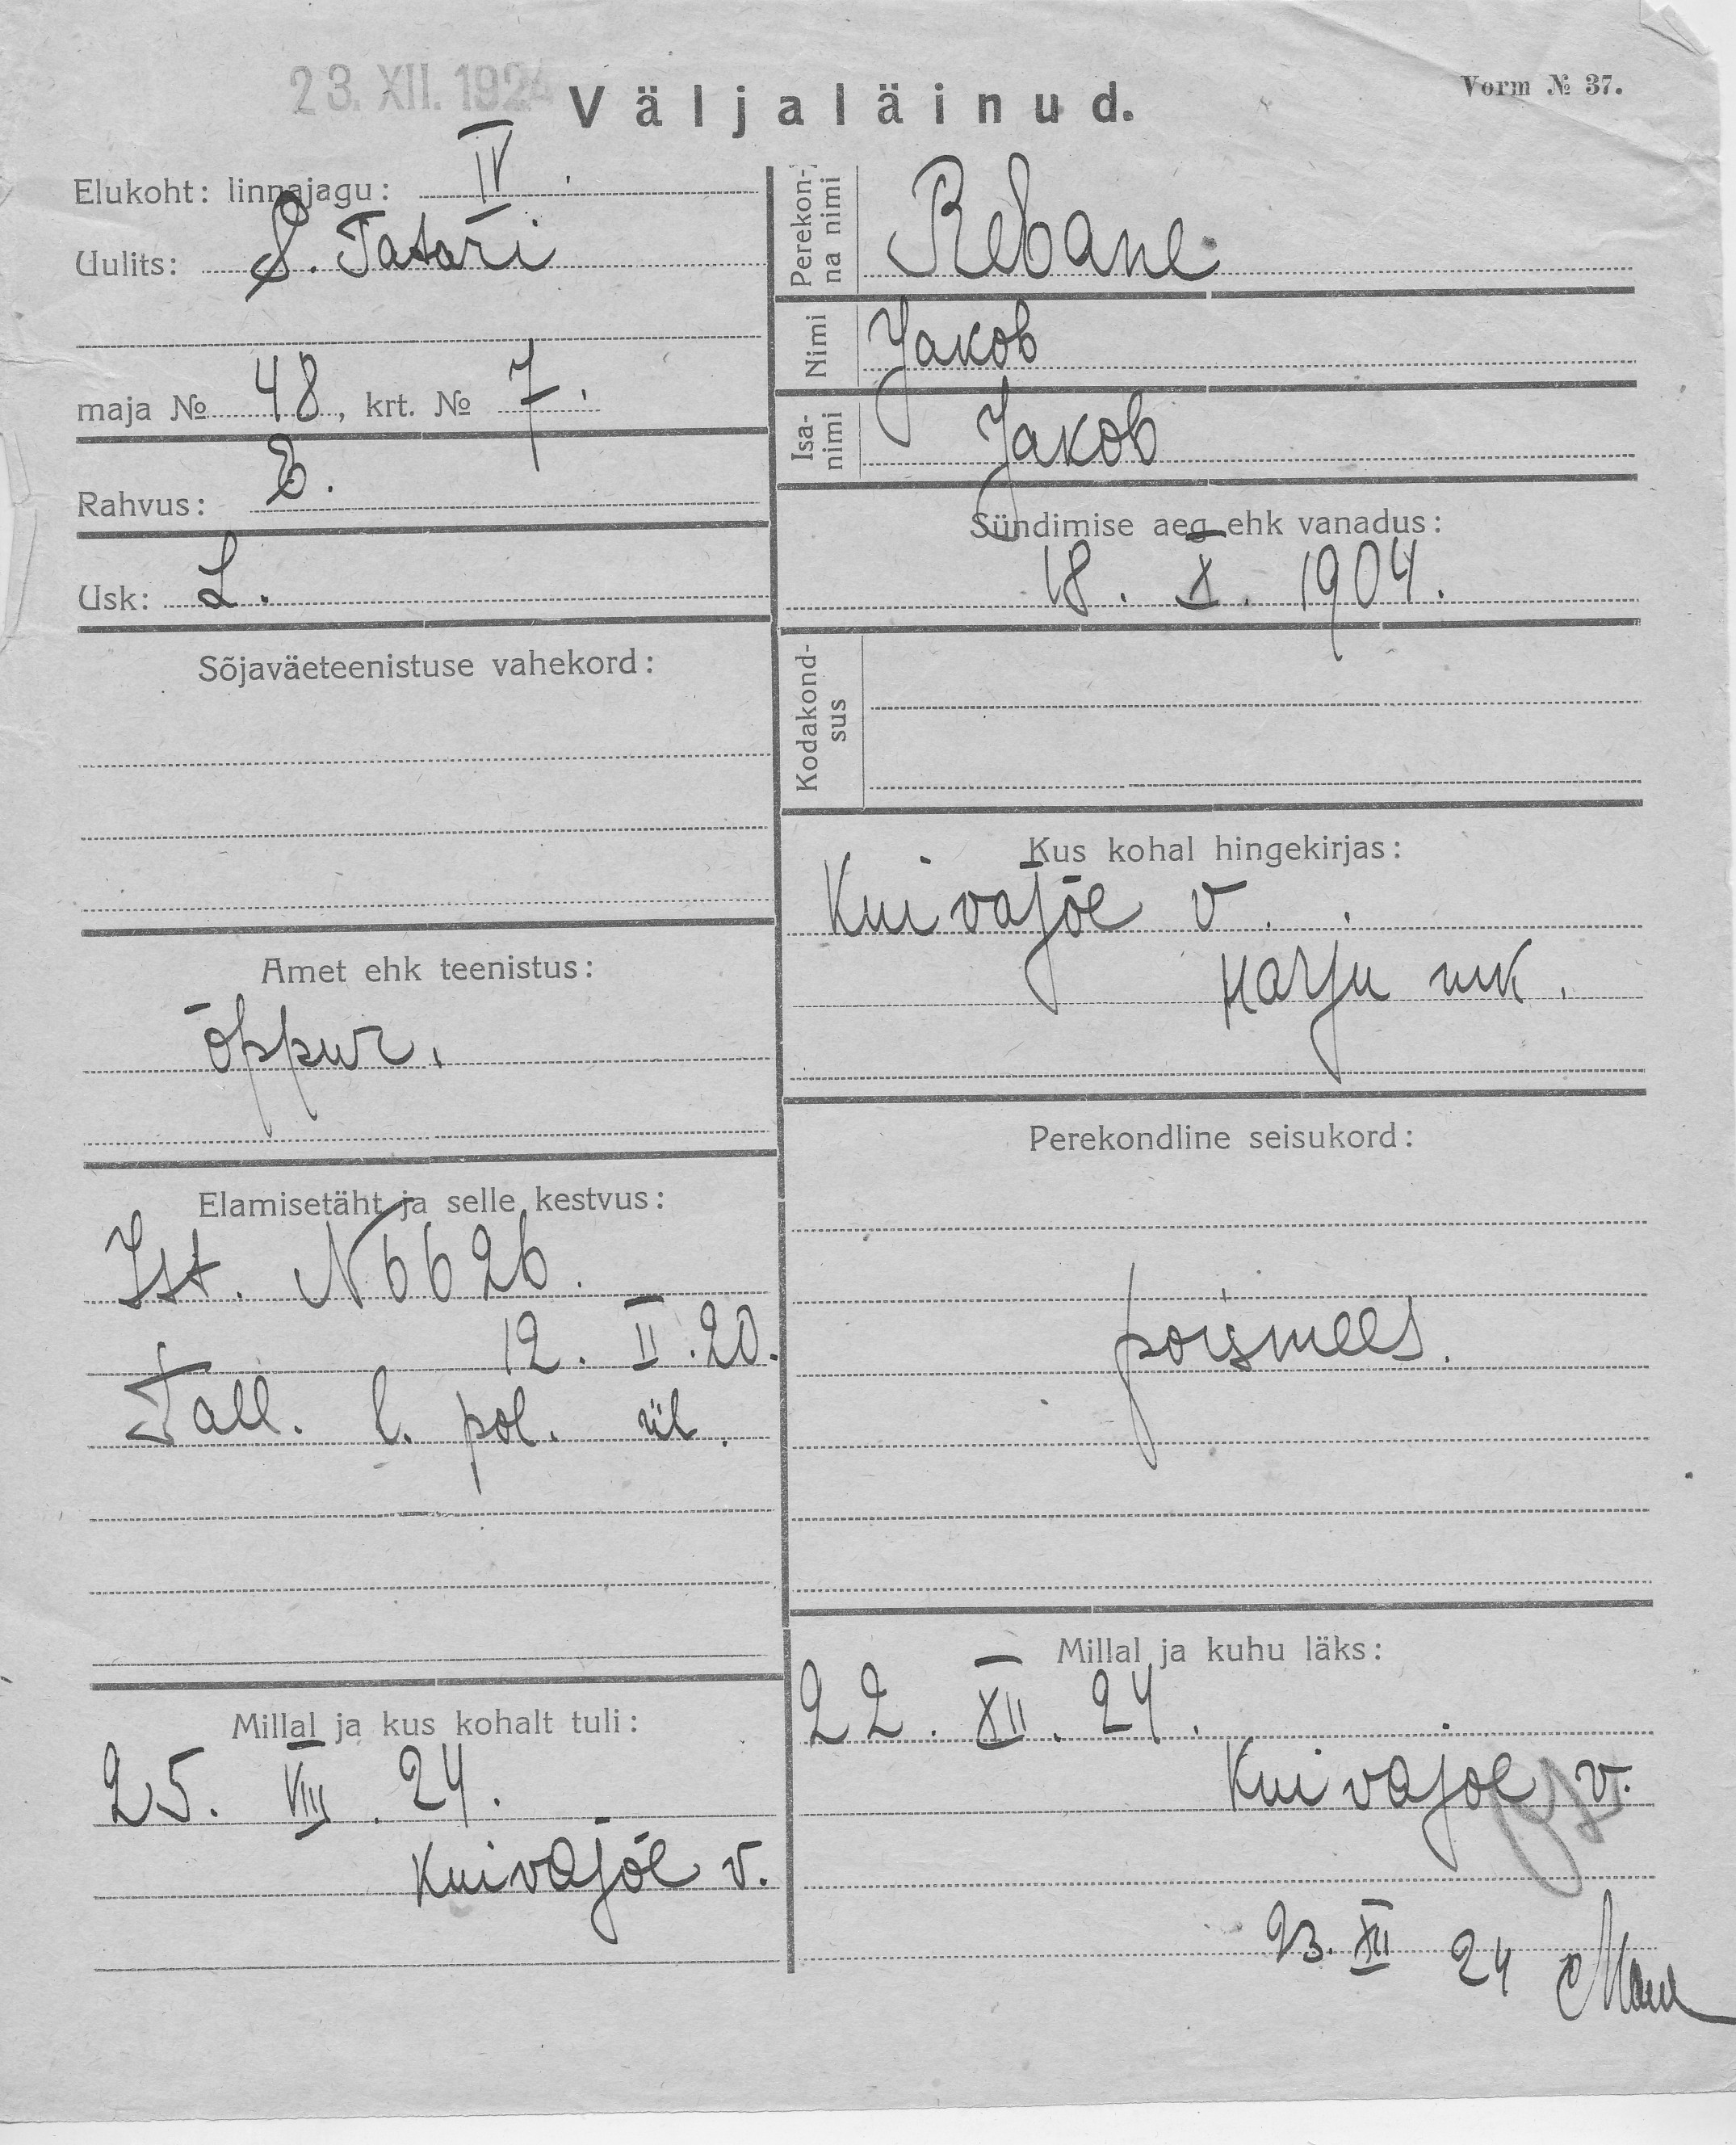 23. XII. 1924
Väljaläinud.
Vorm № 37.
Elukoht: linnajagu: IV.
Uulits: S. Tatari
maja № 48, krt. № 7.
Rahvus: E.
Usk: L.
Sõjaväeteenistuse vahekord:
Amet ehk teenistus:
õppur.
Elamisetäht ja selle kestvus:
Ist. N 6626.
12. II. 20.
Tall. l. pol. ül.
Millal ja kus kohalt tuli:
25. VIII. 24.
Kuivajõe v.
Perekon-
na nimi
Rebane
Nimi
Jakob
Isa-
nimi
Jakob
Sündimise aeg ehk vanadus:
18. X. 1904.
Kodakond-
sus
Kus kohal hingekirjas:
Kuivajõe v.
Harju mk.
Perekondline seisukord:
poismees.
Millal ja kuhu läks:
22. XII. 24.
Kuivajoe v.
23. XII 24